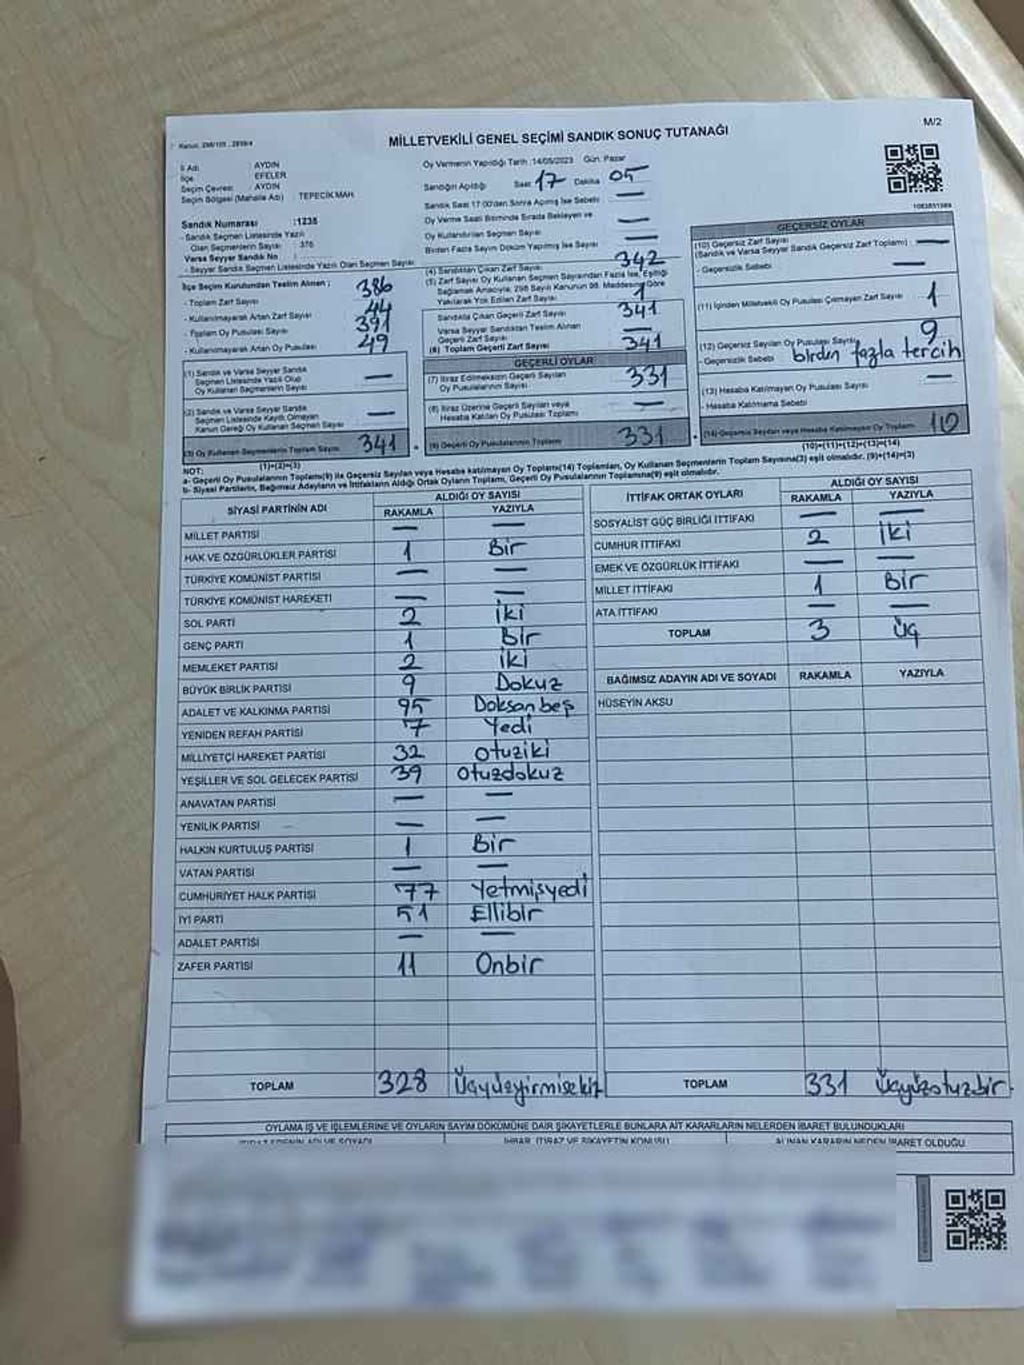 M/2
MİLLETVEKİLİ GENEL SEÇİMİ SANDIK SONUÇ TUTANAĞI
İl Adı : AYDIN
İlçe : EFELER
Seçim Çevresi : AYDIN
Seçim Bölgesi (Mahalle Adı) : TEPECİK MAH.
Sandık Numarası :1235
- Sandık Seçmen Listesinde Yazılı
Olan Seçmenlerin Sayısı : 376
Varsa Seyyar Sandık No :
- Seyyar Sandık Seçmen Listesinde Yazılı Olan Seçmen Sayısı:
İlçe Seçim Kurulundan Teslim Alınan ;
- Toplam Zarf Sayısı : 386
- Kullanılmayarak Artan Zarf Sayısı : 44
- Toplam Oy Pusulası Sayısı : 391
- Kullanılmayarak Artan Oy Pusulası : 49
(1) Sandık ve Varsa Seyyar Sandık
Seçmen Listesinde Yazılı Olup
Oy Kullanan Seçmenlerin Sayısı —
(2) Sandık ve Varsa Seyyar Sandık
Seçmen Listesinde Kayıtlı Olmayan
Kanun Gereği Oy Kullanan Seçmen Sayısı —
(3) Oy Kullanan Seçmenlerin Toplam Sayısı 341
(1)+(2)=(3)
Oy Vermenin Yapıldığı Tarih :14/05/2023 Gün: Pazar
Sandığın Açıldığı Saat 17 Dakika 05
Sandık Saat 17:00'den Sonra Açılmış İse Sebebi : —
Oy Verme Saati Bitiminde Sırada Bekleyen ve
Oy Kullandırılan Seçmen Sayısı : —
Birden Fazla Sayım Döküm Yapılmış İse Sayısı : —
(4) Sandıktan Çıkan Zarf Sayısı : 342
(5) Zarf Sayısı Oy Kullanan Seçmen Sayısından Fazla İse, Eşitliği
Sağlamak Amacıyla, 298 Sayılı Kanunun 98. Maddesine Göre
Yakılarak Yok Edilen Zarf Sayısı : 1
Sandıkta Çıkan Geçerli Zarf Sayısı : 341
Varsa Seyyar Sandıktan Teslim Alınan
Geçerli Zarf Sayısı : —
(6) Toplam Geçerli Zarf Sayısı : 341
GEÇERLİ OYLAR
(7) İtiraz Edilmeksizin Geçerli Sayılan
Oy Pusulalarının Sayısı : 331
(8) İtiraz Üzerine Geçerli Sayılan veya
Hesaba Katılan Oy Pusulası Toplamı : —
(9) Geçerli Oy Pusulalarının Toplamı : 331
GEÇERSİZ OYLAR
(10) Geçersiz Zarf Sayısı
(Sandık ve Varsa Seyyar Sandık Geçersiz Zarf Toplamı) : —
- Geçersizlik Sebebi : —
(11) İçinden Milletvekili Oy Pusulası Çıkmayan Zarf Sayısı : 1
(12) Geçersiz Sayılan Oy Pusulası Sayısı : 9
- Geçersizlik Sebebi : birden fazla tercih
(13) Hesaba Katılmayan Oy Pusulası Sayısı : —
- Hesaba Katılmama Sebebi :
(14) Geçersiz Sayılan veya Hesaba Katılmayan Oy Toplamı : 10
(10)+(11)+(12)+(13)=(14)
NOT:
a- Geçerli Oy Pusulalarının Toplamı(9) ile Geçersiz Sayılan veya Hesaba katılmayan Oy Toplamı(14) Toplamları, Oy Kullanan Seçmenlerin Toplam Sayısına(3) eşit olmalıdır. (9)+(14)=(3)
b- Siyasi Partilerin, Bağımsız Adayların ve İttifakların Aldığı Ortak Oyların Toplamı, Geçerli Oy Pusulalarının Toplamına(9) eşit olmalıdır.
SİYASİ PARTİNİN ADI ALDIĞI OY SAYISI
RAKAMLA YAZIYLA
MİLLET PARTİSİ — —
HAK VE ÖZGÜRLÜKLER PARTİSİ 1 Bir
TÜRKİYE KOMÜNİST PARTİSİ — —
TÜRKİYE KOMÜNİST HAREKETİ — —
SOL PARTİ 2 iki
GENÇ PARTİ 1 Bir
MEMLEKET PARTİSİ 2 iki
BÜYÜK BİRLİK PARTİSİ 9 Dokuz
ADALET VE KALKINMA PARTİSİ 95 Doksanbeş
YENİDEN REFAH PARTİSİ 7 Yedi
MİLLİYETÇİ HAREKET PARTİSİ 32 otuziki
YEŞİLLER VE SOL GELECEK PARTİSİ 39 otuzdokuz
ANAVATAN PARTİSİ — —
YENİLİK PARTİSİ — —
HALKIN KURTULUŞ PARTİSİ 1 Bir
VATAN PARTİSİ — —
CUMHURİYET HALK PARTİSİ 77 Yetmişyedi
İYİ PARTİ 51 Ellibir
ADALET PARTİSİ — —
ZAFER PARTİSİ 11 Onbir
TOPLAM 328 Üçyüzyirmisekiz
İTTİFAK ORTAK OYLARI ALDIĞI OY SAYISI
RAKAMLA YAZIYLA
SOSYALİST GÜÇ BİRLİĞİ İTTİFAKI — —
CUMHUR İTTİFAKI 2 iki
EMEK VE ÖZGÜRLÜK İTTİFAKI — —
MİLLET İTTİFAKI 1 Bir
ATA İTTİFAKI — —
TOPLAM 3 üç
BAĞIMSIZ ADAYIN ADI VE SOYADI RAKAMLA YAZIYLA
HÜSEYİN AKSU
TOPLAM 331 Üçyüzotuzbir
OYLAMA İŞ VE İŞLEMLERİNE VE OYLARIN SAYIM DÖKÜMÜNE DAİR ŞİKAYETLERLE BUNLARA AİT KARARLARIN NELERDEN İBARET BULUNDUKLARI
İTİRAZ EDENİN ADI VE SOYADI İHBAR, İTİRAZ VE ŞİKAYETİN KONUSU ALINAN KARARIN NEDEN İBARET OLDUĞU